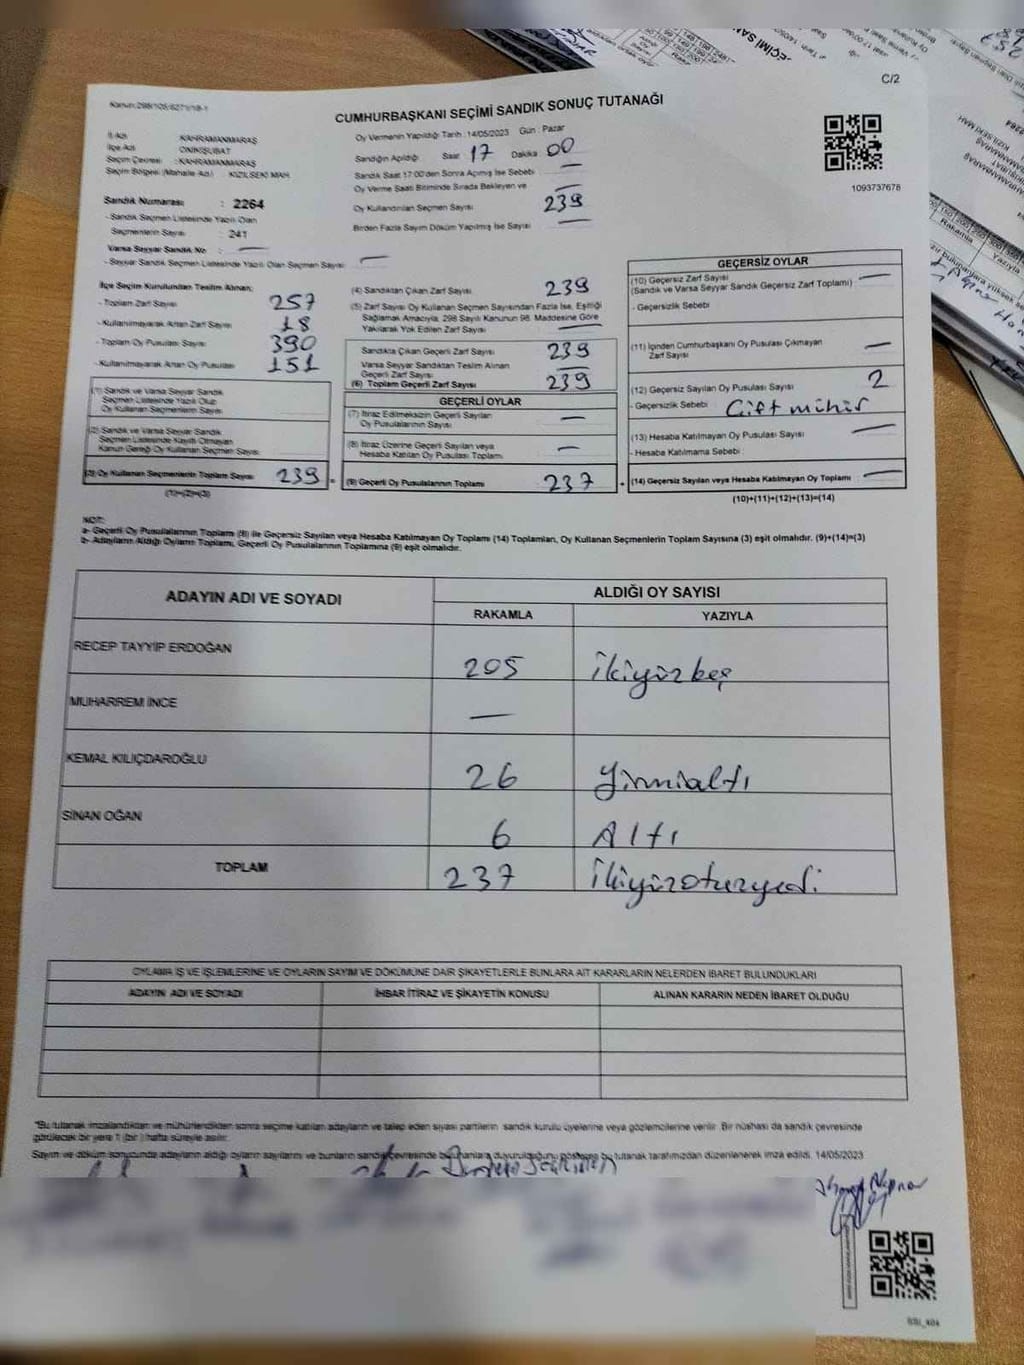 C/2
Kanun:298/105/6271/18-1
CUMHURBAŞKANI SEÇİMİ SANDIK SONUÇ TUTANAĞI
İl Adı KAHRAMANMARAŞ
İlçe Adı ONİKİŞUBAT
Seçim Çevresi : KAHRAMANMARAŞ
Seçim Bölgesi (Mahalle Adı) KIZILSEKİ MAH
Sandık Numarası : 2264
- Sandık Seçmen Listesinde Yazılı Olan
Seçmenlerin Sayısı : 241
Varsa Seyyar Sandık No : —
- Seyyar Sandık Seçmen Listesinde Yazılı Olan Seçmen Sayısı —
Oy Vermenin Yapıldığı Tarih : 14/05/2023 Gün : Pazar
Sandığın Açıldığı Saat 17 Dakika 00
Sandık Saat 17:00'den Sonra Açılmış İse Sebebi —
Oy Verme Saati Bitiminde Sırada Bekleyen ve —
Oy Kullandırılan Seçmen Sayısı 239
Birden Fazla Sayım Döküm Yapılmış İse Sayısı —
1093737678
İlçe Seçim Kurulundan Teslim Alınan:
- Toplam Zarf Sayısı 257
- Kullanılmayarak Artan Zarf Sayısı 18
- Toplam Oy Pusulası Sayısı 390
- Kullanılmayarak Artan Oy Pusulası 151
(1) Sandık ve Varsa Seyyar Sandık
Seçmen Listesinde Yazılı Olup
Oy Kullanan Seçmenlerin Sayısı
(2) Sandık ve Varsa Seyyar Sandık
Seçmen Listesinde Kayıtlı Olmayan
Kanun Gereği Oy Kullanan Seçmenlerin Sayısı
(3) Oy Kullanan Seçmenlerin Toplam Sayısı 239
(1)+(2)=(3)
(4) Sandıktan Çıkan Zarf Sayısı 239
(5) Zarf Sayısı Oy Kullanan Seçmen Sayısından Fazla İse, Eşitliği
Sağlamak Amacıyla, 298 Sayılı Kanunun 98. Maddesine Göre
Yakılarak Yok Edilen Zarf Sayısı —
Sandıkta Çıkan Geçerli Zarf Sayısı 239
Varsa Seyyar Sandıktan Teslim Alınan
Geçerli Zarf Sayısı —
(6) Toplam Geçerli Zarf Sayısı 239
GEÇERLİ OYLAR
(7) İtiraz Edilmeksizin Geçerli Sayılan
Oy Pusulalarının Sayısı —
(8) İtiraz Üzerine Geçerli Sayılan veya
Hesaba Katılan Oy Pusulaları Toplamı —
(9) Geçerli Oy Pusulalarının Toplamı 237
GEÇERSİZ OYLAR
(10) Geçersiz Zarf Sayısı —
(Sandık ve Varsa Seyyar Sandık Geçersiz Zarf Toplamı)
- Geçersizlik Sebebi
(11) İçinden Cumhurbaşkanı Oy Pusulası Çıkmayan
Zarf Sayısı —
(12) Geçersiz Sayılan Oy Pusulası Sayısı 2
- Geçersizlik Sebebi Çift mühür
(13) Hesaba Katılmayan Oy Pusulası Sayısı —
- Hesaba Katılmama Sebebi
(14) Geçersiz Sayılan veya Hesaba Katılmayan Oy Toplamı —
(10)+(11)+(12)+(13)=(14)
NOT:
a- Geçerli Oy Pusulalarının Toplamı (9) ile Geçersiz Sayılan veya Hesaba Katılmayan Oy Toplamı (14) Toplamları, Oy Kullanan Seçmenlerin Toplam Sayısına (3) eşit olmalıdır. (9)+(14)=(3)
b- Adayların Aldığı Oyların Toplamı, Geçerli Oy Pusulalarının Toplamına (9) eşit olmalıdır.
ADAYIN ADI VE SOYADI ALDIĞI OY SAYISI
RAKAMLA YAZIYLA
RECEP TAYYİP ERDOĞAN 205 ikiyüzbeş
MUHARREM İNCE —
KEMAL KILIÇDAROĞLU 26 yirmialtı
SİNAN OĞAN 6 Altı
TOPLAM 237 ikiyüzotuzyedi
OYLAMA İŞ VE İŞLEMLERİNE VE OYLARIN SAYIM VE DÖKÜMÜNE DAİR ŞİKAYETLERLE BUNLARA AİT KARARLARIN NELERDEN İBARET BULUNDUKLARI
ADAYIN ADI VE SOYADI İHBAR İTİRAZ VE ŞİKAYETİN KONUSU ALINAN KARARIN NEDEN İBARET OLDUĞU
*Bu tutanak imzalandıktan ve mühürlendikten sonra seçime katılan adayların ve talep eden siyasi partilerin sandık kurulu üyelerine veya gözlemcilerine verilir. Bir nüshası da sandık çevresinde
görülecek bir yere 1 (bir) hafta süreyle asılır.
Sayım ve döküm sonucunda adayların aldığı oyların sayılarını ve bunların sandık çevresinde bulunanlara duyurulduğunu gösteren bu tutanak tarafımızdan düzenlenerek imza edildi. 14/05/2023